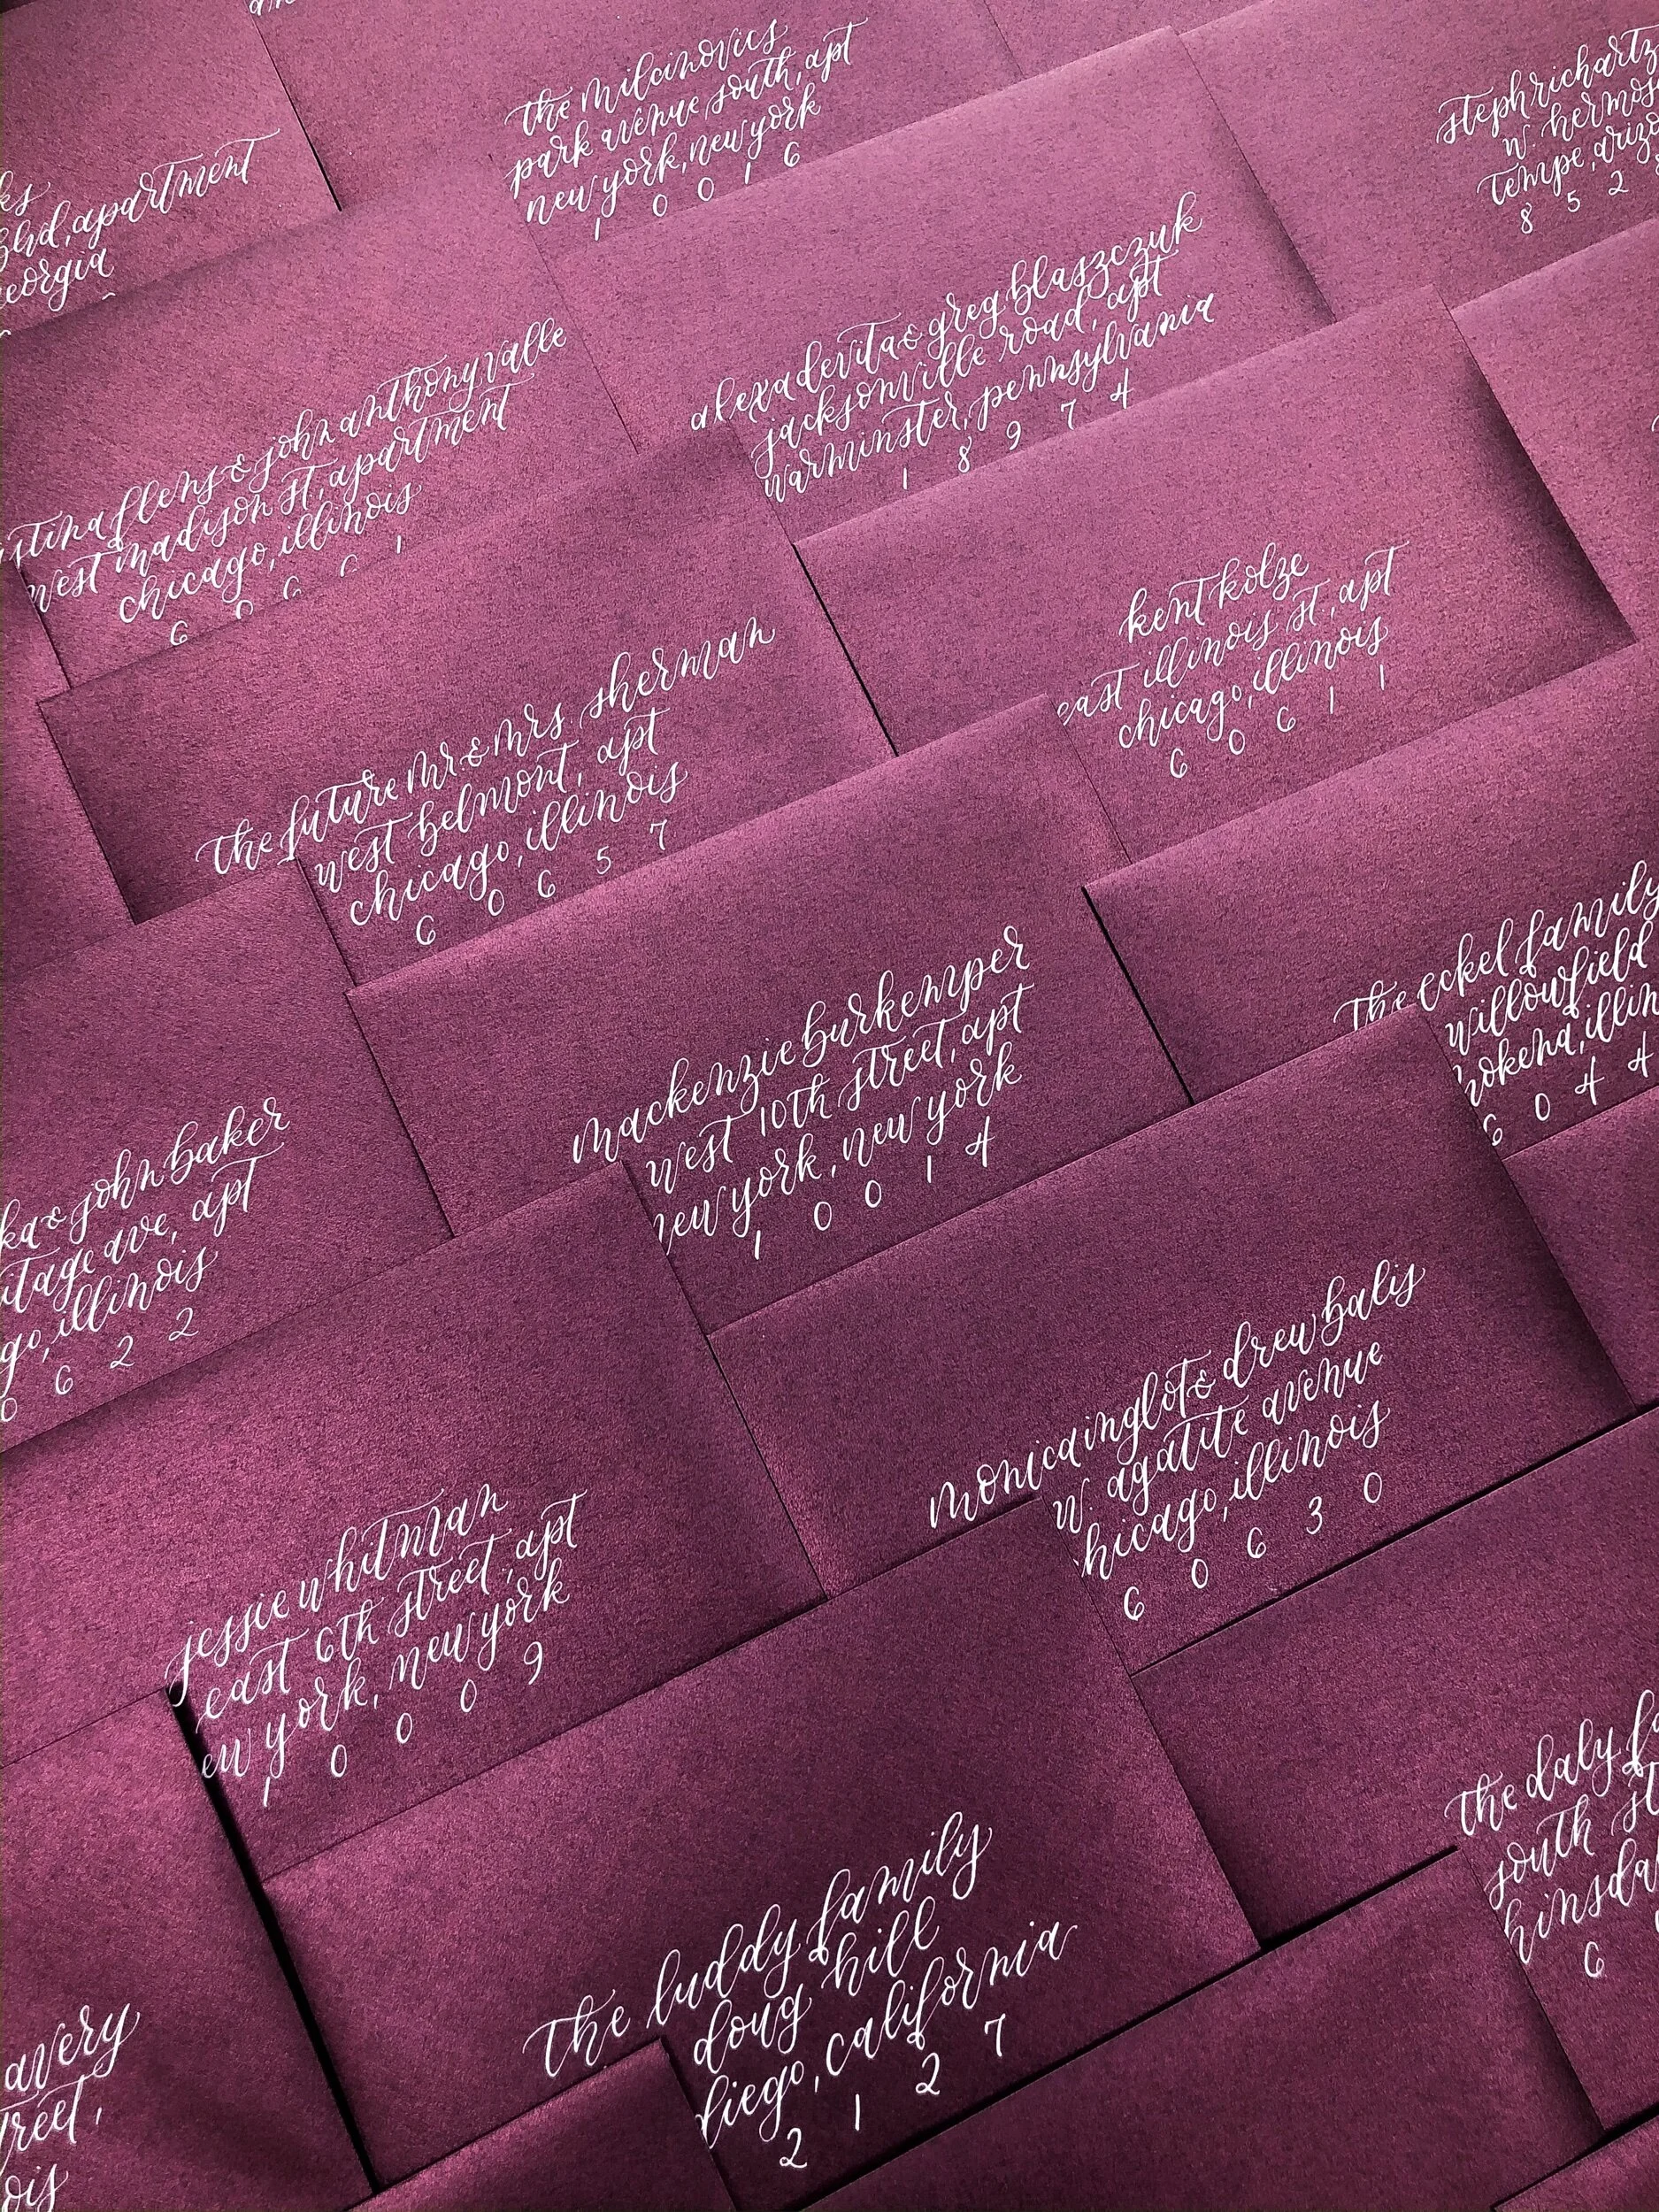 the milcinovics
park avenue south, apt
new york, new york
1 0 0 1 6
steph richartz
w. hermos
tempe, arizo
8 5 2 8
ks
blvd, apartment
eorgia
alexa devita & greg blaszczuk
jacksonville road, apt
warminster, pennsylvania
1 8 9 7 4
stina flens & john anthony valle
west madison st, apartment
chicago, illinois
6 0 6 6 1
kent kolze
east illinois st, apt
chicago, illinois
6 0 6 1 1
the future mr. & mrs sherman
west belmont, apt
chicago, illinois
6 0 6 5 7
the eckel family
willowfield
okena, illin
6 0 4 4
mackenzie burkemper
west 10th street, apt
new york, new york
1 0 0 1 4
ka & john baker
itage ave, apt
go, illinois
0 6 2 2
monica inglot & drew balis
w. agatite avenue
chicago, illinois
6 0 6 3 0
jessie whitman
east 6th street, apt
ew york, new york
1 0 0 0 9
the daly fa
south st
hinsdal
6
the luddy family
doug hill
diego, california
2 1 2 7
avery
treet,
ois